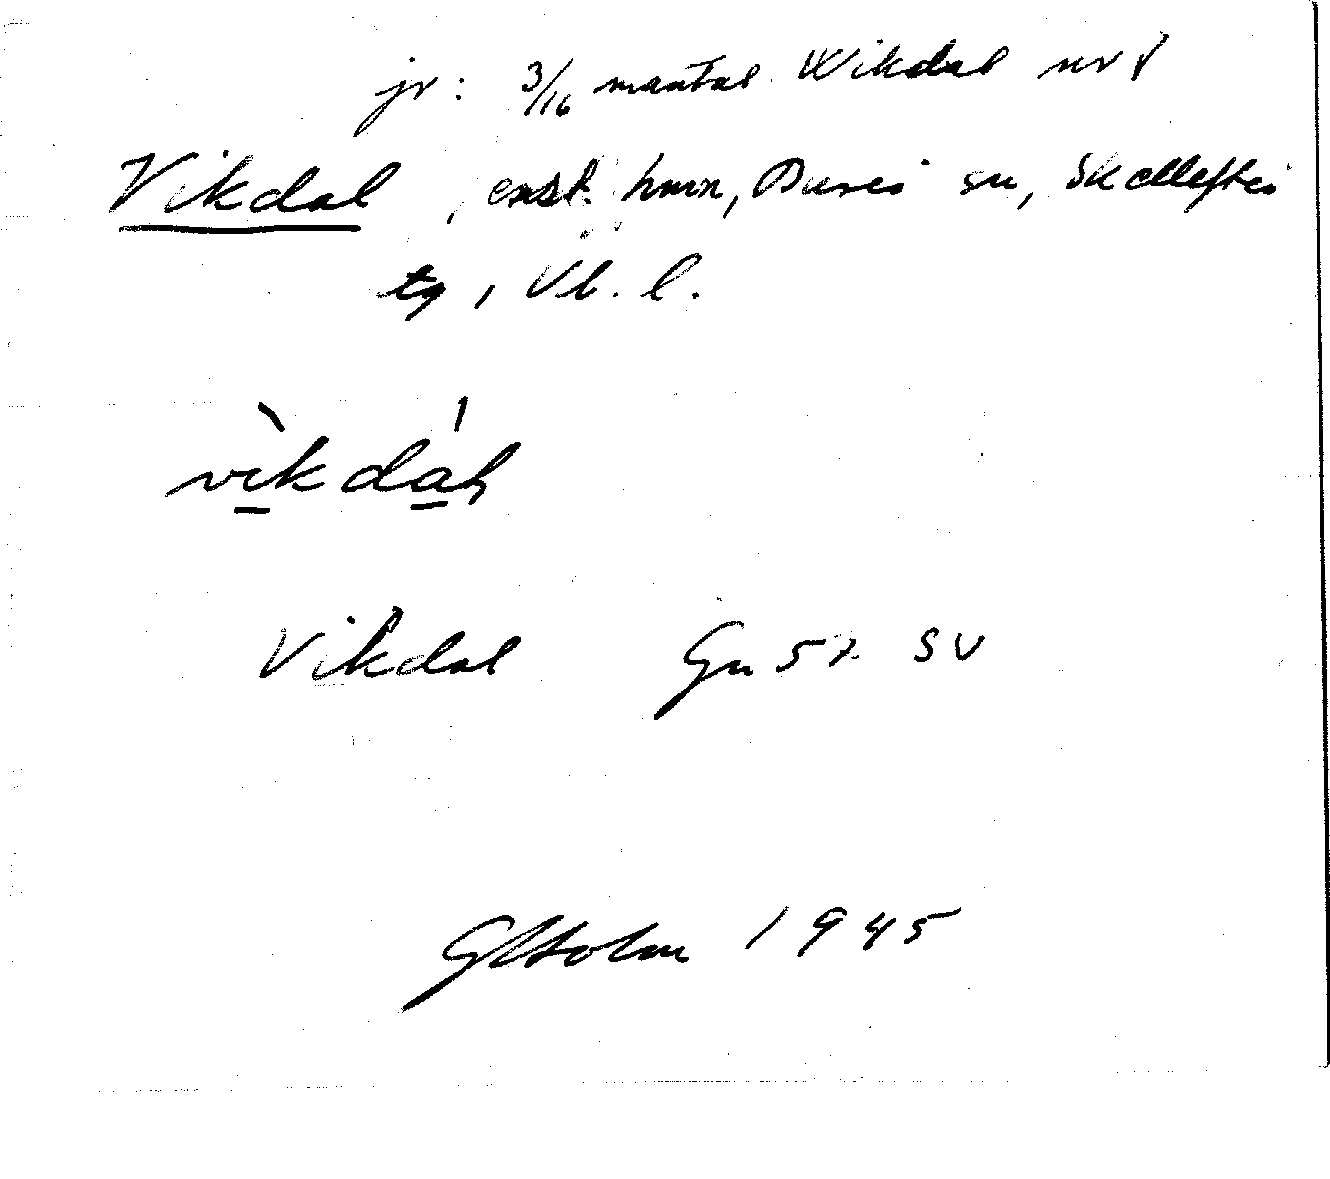 jr: 3/16 mantal Wikdal nr 1
Vikdal, enst. hmn, Bureå sn, Skellefteå
tg, Vb. l.
vìkdáɫ
Vikdal Gn 57 SV
GHolm 1945